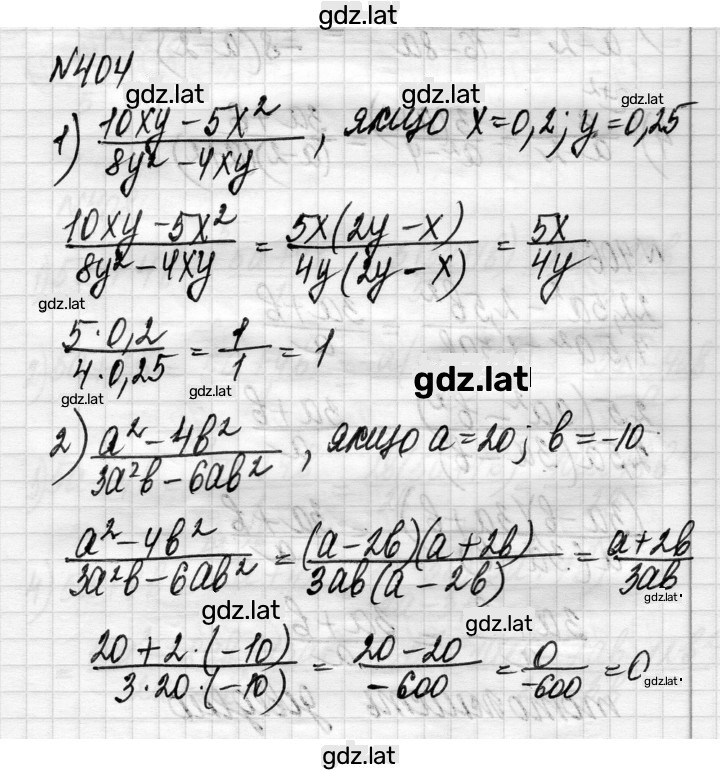 gdz.lat
№404
gdz.lat gdz.lat gdz.lat
1) (10xy - 5x²)/(8y² - 4xy), якщо x=0,2; y=0,25
(10xy - 5x²)/(8y² - 4xy) = 5x(2y - x)/4y(2y - x) = 5x/4y
gdz.lat gdz.lat
5·0,2/4·0,25 = 1/1 = 1
gdz.lat gdz.lat gdz.lat
2) (a² - 4b²)/(3a²b - 6ab²), якщо a=20; b=-10
(a² - 4b²)/(3a²b - 6ab²) = (a - 2b)(a + 2b)/3ab(a - 2b) = (a + 2b)/3ab
gdz.lat gdz.lat gdz.lat
(20 + 2·(-10))/(3·20·(-10)) = (20 - 20)/-600 = 0/-600 = 0
gdz.lat
gdz.lat